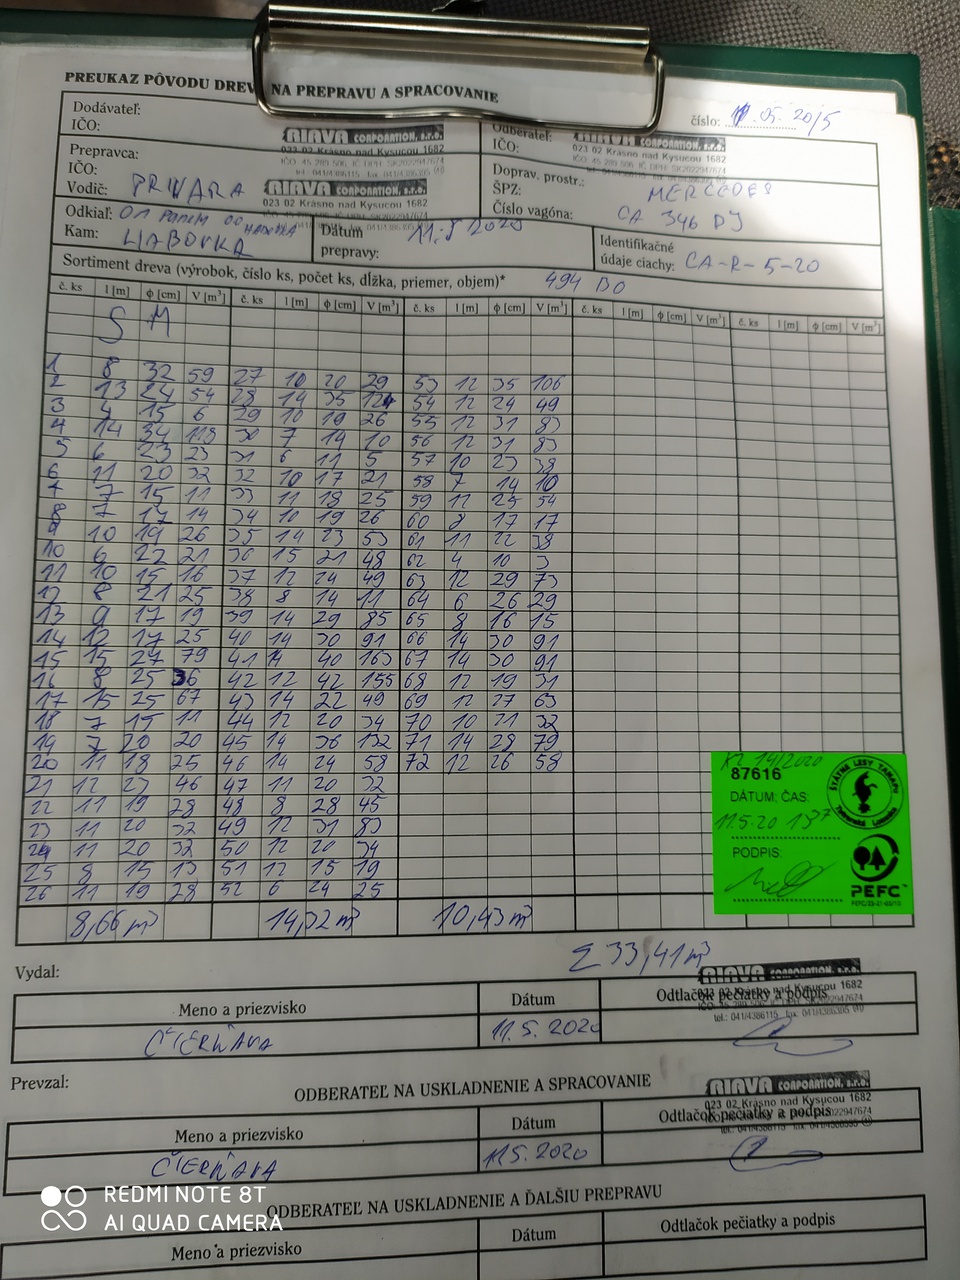 PREUKAZ PÔVODU DREVA NA PREPRAVU A SPRACOVANIE
číslo: 11.05.20/5
Dodávateľ:
IČO:
RIAVA CORPORATION, s.r.o.
023 02 Krásno nad Kysucou 1682
Odberateľ:
IČO:
RIAVA CORPORATION, s.r.o.
023 02 Krásno nad Kysucou 1682
Prepravca:
IČO:
Vodič: PRIVARA
RIAVA CORPORATION, s.r.o.
023 02 Krásno nad Kysucou 1682
Doprav. prostr.: MERCEDES
ŠPZ: CA 346 DJ
Číslo vagóna:
Odkiaľ:
Kam:
Dátum prepravy:
Identifikačné údaje ciachy: CA-R-5-20
Sortiment dreva (výrobok, číslo ks, počet ks, dĺžka, priemer, objem)* 494 DO
č. ks l [m] ϕ [cm] V [m³] č. ks l [m] ϕ [cm] V [m³] č. ks l [m] ϕ [cm] V [m³] č. ks l [m] ϕ [cm] V [m³] č. ks l [m] ϕ [cm] V [m³]
SM
1 8 32 59 27 10 20 29 53 12 35 106
2 13 24 54 28 14 35 124 54 12 24 49
3 4 15 6 29 10 19 26 55 12 31 83
4 14 34 118 30 7 14 10 56 12 31 83
5 6 23 23 31 6 11 5 57 10 23 38
6 11 20 32 32 10 17 21 58 7 14 10
7 7 15 11 33 11 18 25 59 11 25 54
8 7 17 14 34 10 19 26 60 8 17 17
9 10 19 26 35 14 23 53 61 11 22 38
10 6 22 21 36 15 21 48 62 4 10 3
11 10 15 16 37 12 24 49 63 12 29 73
12 8 21 25 38 8 14 11 64 6 26 29
13 9 17 19 39 14 29 85 65 8 16 15
14 12 17 25 40 14 30 91 66 14 30 91
15 15 27 79 41 14 40 163 67 14 30 91
16 8 25 36 42 12 42 155 68 12 19 31
17 15 25 67 43 14 22 49 69 12 27 63
18 7 15 11 44 12 20 34 70 10 21 32
19 7 20 20 45 14 36 132 71 14 28 79
20 11 18 25 46 14 24 58 72 12 26 58
21 12 23 46 47 11 20 32
22 11 19 28 48 8 28 45
23 11 20 32 49 12 31 83
24 11 20 32 50 12 20 34
25 8 15 13 51 12 15 19
26 11 19 28 52 6 24 25
8,66 m³ 14,32 m³ 10,43 m³
Σ 33,41 m³
87616
DÁTUM; ČAS:
11.5.20
PODPIS:
ŠTÁTNE LESY TANAPU
PEFC
Vydal:
Meno a priezvisko Dátum Odtlačok pečiatky a podpis
ČIERŇAVA 11.5.2020
RIAVA CORPORATION, s.r.o.
023 02 Krásno nad Kysucou 1682
Prevzal:
ODBERATEĽ NA USKLADNENIE A SPRACOVANIE
Meno a priezvisko Dátum Odtlačok pečiatky a podpis
ČIERŇAVA 11.5.2020
RIAVA CORPORATION, s.r.o.
023 02 Krásno nad Kysucou 1682
ODBERATEĽ NA USKLADNENIE A ĎALŠIU PREPRAVU
Meno a priezvisko Dátum Odtlačok pečiatky a podpis
REDMI NOTE 8T
AI QUAD CAMERA